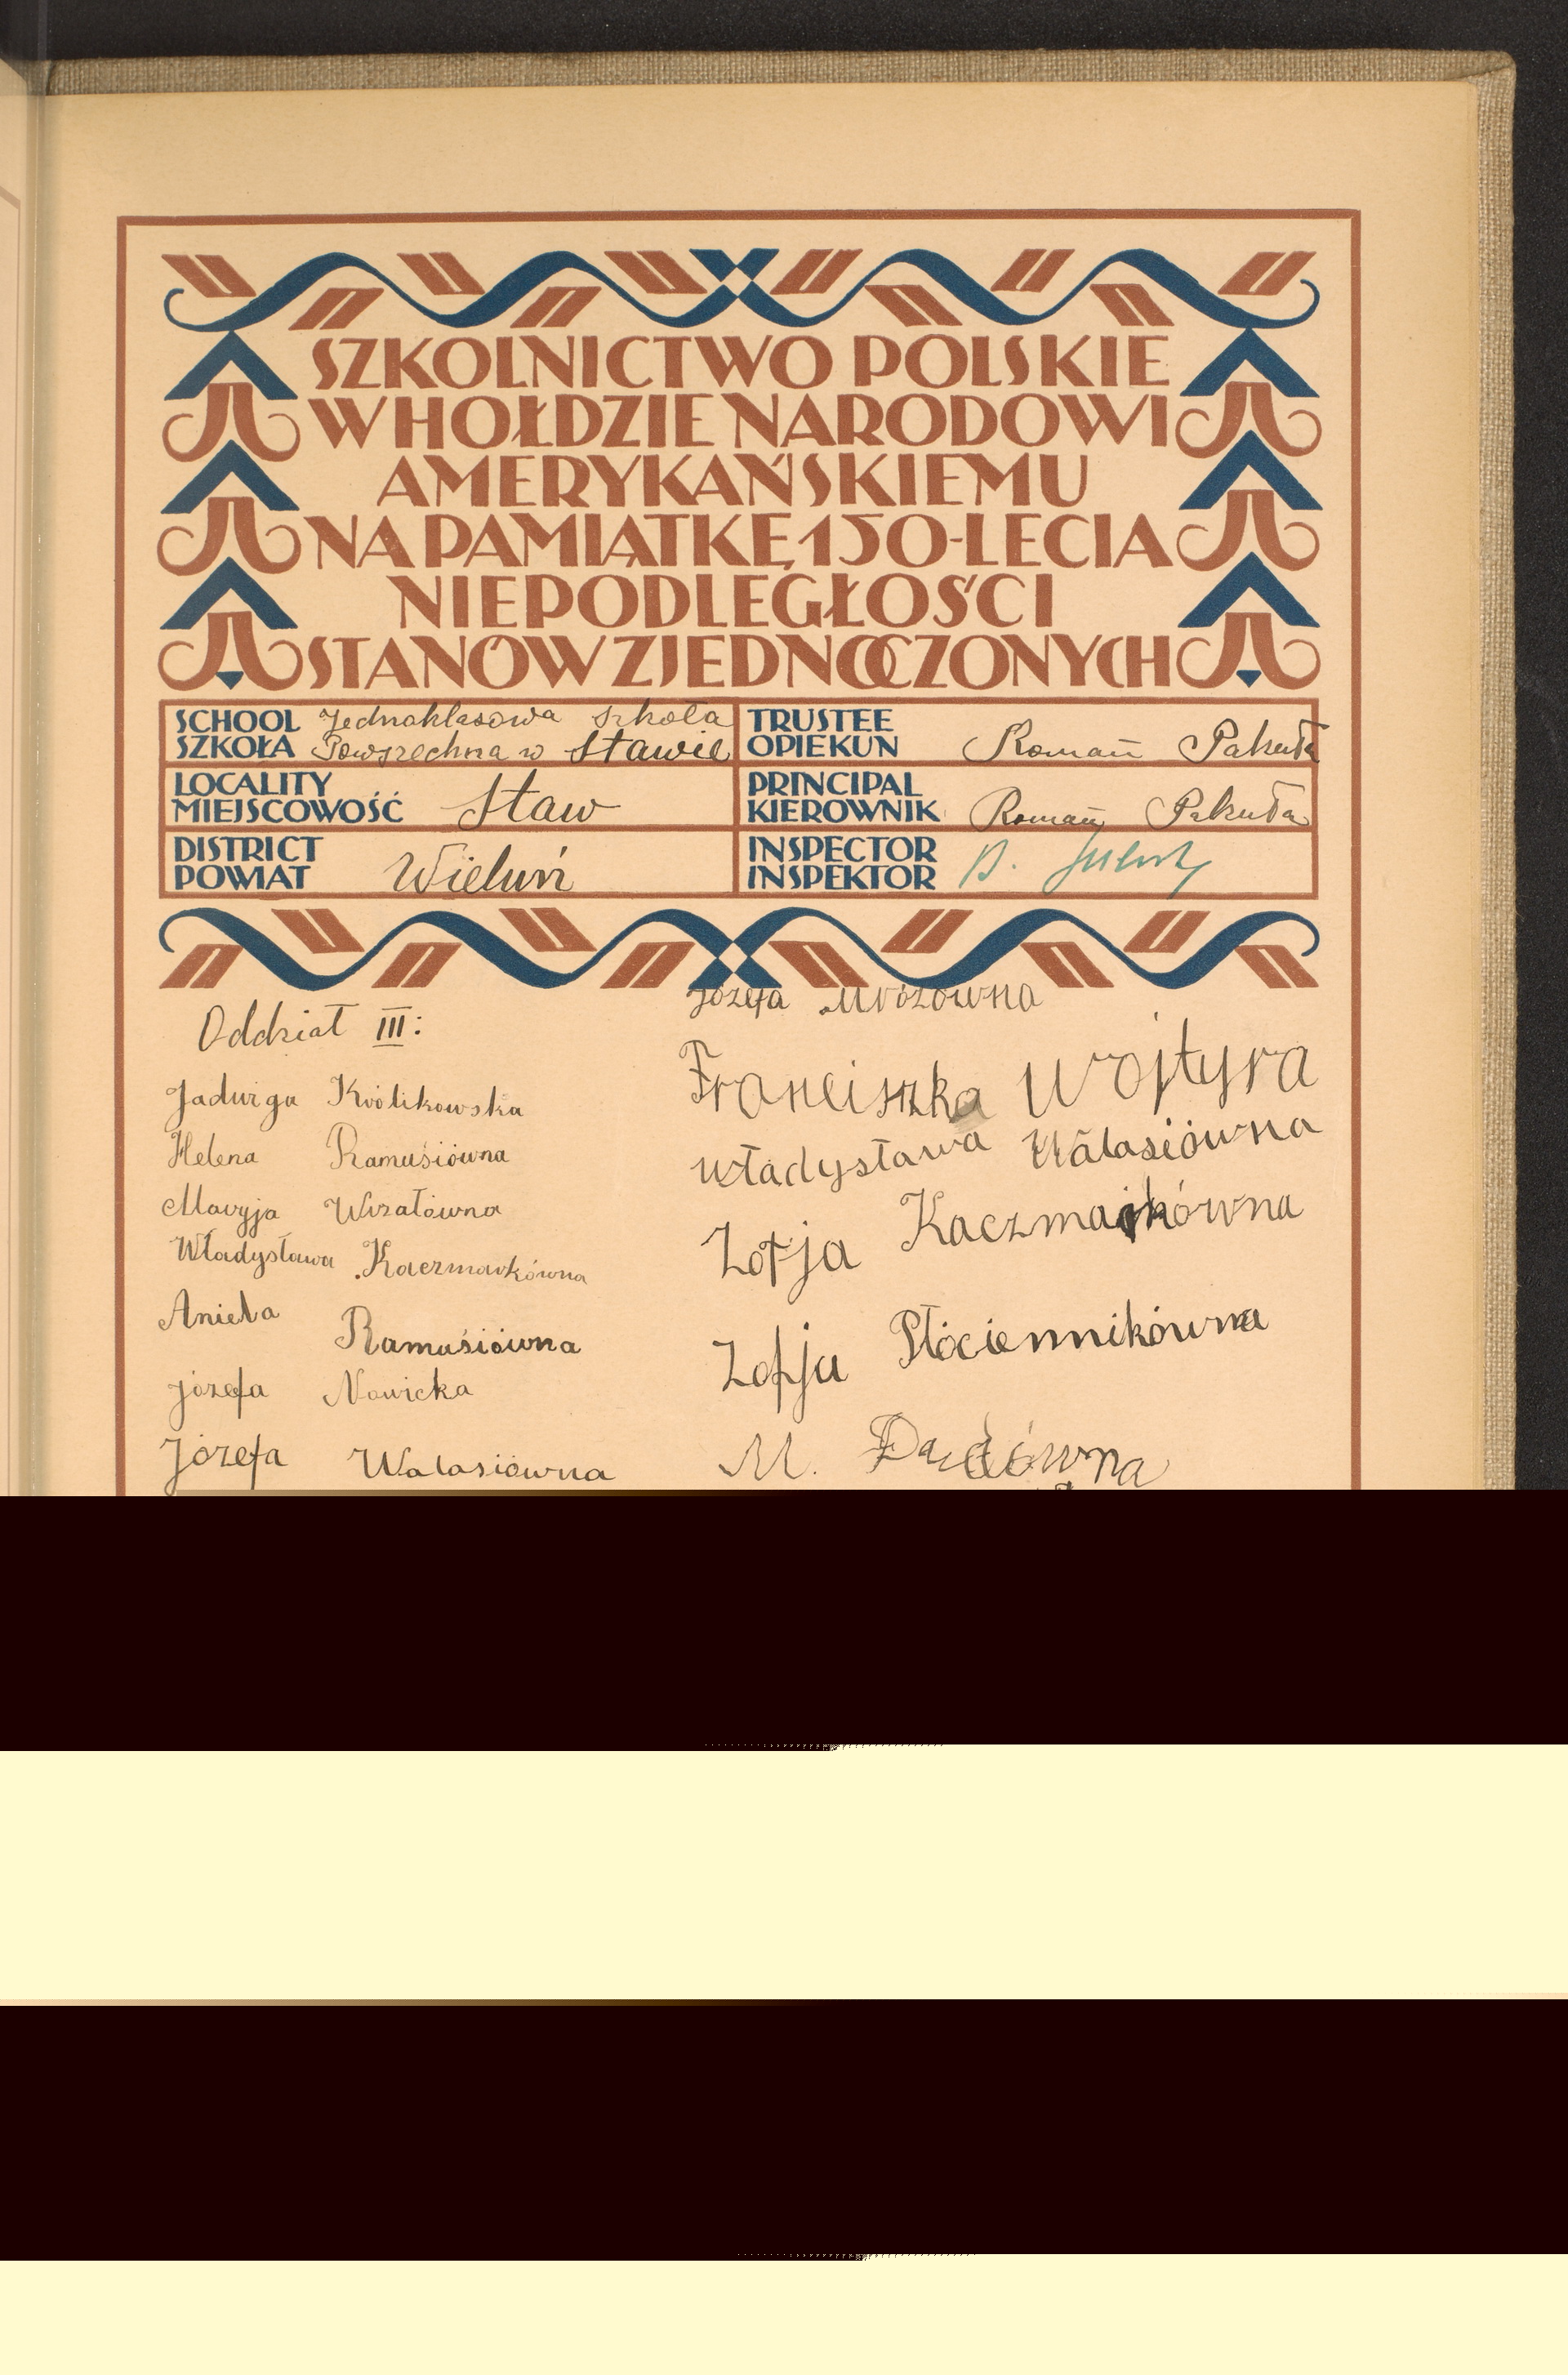 SZKOLNICTWO POLSKIE
W HOŁDZIE NARODOWI
AMERYKAŃSKIEMU
NA PAMIĄTKĘ 150-LECIA
NIEPODLEGŁOŚCI
STANÓW ZJEDNOCZONYCH
SCHOOL
SZKOŁA
Jednoklasowa szkoła
Powszechna w Stawie
TRUSTEE
OPIEKUN
Roman Pakuła
LOCALITY
MIEJSCOWOŚĆ
Staw
PRINCIPAL
KIEROWNIK
Roman Pakuła
DISTRICT
POWIAT
Wieluń
INSPECTOR
INSPEKTOR
Oddział III:
Jadwiga Królikowska
Helena Ramusiówna
Maryja Wrzałówna
Władysława Kaczmarkówna
Aniela Ramusiówna
Józefa Nowicka
Józefa Walasiówna
Józefa Mrozówna
Franciszka Wojtyra
Władysława Walasiówna
Zofja Kaczmarkówna
Zofja Płóciennikówna
M. Dudówna